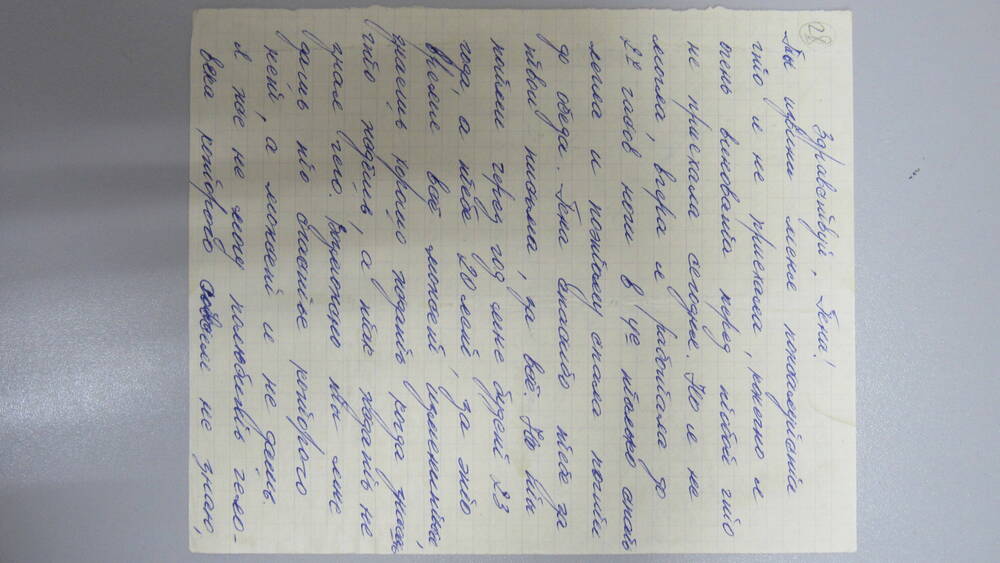 28
Здравствуй, Гена!
Ты извини меня пожалуйста
что я не приехала, конечно я
очень виновата перед тобой что
не приехала сегодня. Но я не
могла, вчера я работала до
22 часов ночи в 4е только спать
легла и поэтому спала почти
до обеда. Гена спасибо тебе за
твои письма, за всё. Но ты
пойми через год мне будет 23
года, а тебе 20 лет, за это
время всё может измениться,
знаешь хорошо ждать когда знаешь
что ждёшь, а так ждать не
зная чего. Возможно ты мне
дашь то счастье которого
нет, а может и не дашь.
Я же не могу полюбить чело-
века которого совсем не знаю,